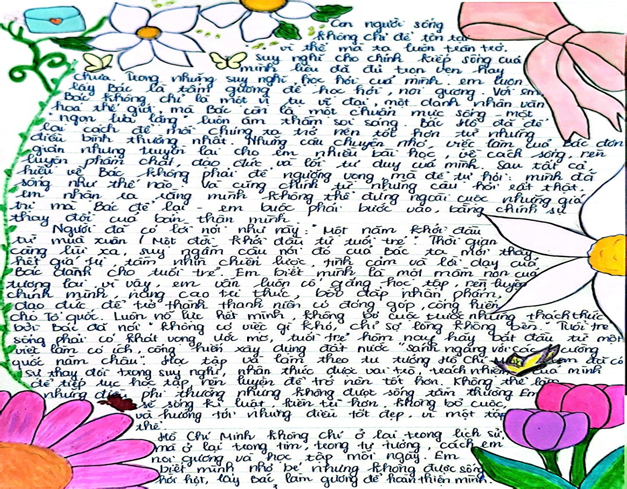 Con người sống
không chỉ để tồn tại
vì thế mà ta luôn trăn trở,
suy nghĩ cho chính kiếp sống của
mình liệu đã đủ trọn vẹn hay
chưa. Trong những suy nghĩ, học hỏi của mình, em luôn
lấy Bác là tấm gương để học hỏi, noi gương. Với em
Bác không chỉ là một vị tu vĩ đại, một danh nhân văn
hoá thế giới, mà Bác còn là một chuẩn mực sống, một
ngọn lửa lặng luôn âm thầm soi sáng. Bác Hồ đã để
lại cách để mỗi chúng ta trở nên tốt hơn từ những
điều bình thường nhất. Những câu chuyện nhỏ, việc làm của Bác đơn
giản nhưng truyền lại cho em nhiều bài học, về cách sống, rèn
luyện phẩm chất, đạo đức và lối tư duy của mình. Sau tất cả
hiểu về Bác không phải để ngưỡng vọng mà để tự hỏi: mình đã
sống như thế nào. Và cũng chính từ những câu hỏi rất thật,
em nhận ra rằng mình không thể đứng ngoài cuộc những giá
trị mà Bác để lại - em buộc phải bước vào, bằng chính sự
thay đổi của bản thân mình.
Người đã có lời nói như này: "Một năm khởi đầu
từ mùa xuân. Một đời khởi đầu từ tuổi trẻ". Thời gian
càng lùi xa, suy ngẫm câu nói đó của Bác ta mới thấy
hết giá trị, tầm nhìn chiến lược, tình cảm và lời dạy của
Bác dành cho tuổi trẻ. Em biết mình là một mầm non của
tương lai vì vậy, em vẫn luôn cố gắng học tập, rèn luyện
chính mình, nâng cao tri thức, bồi đắp nhân phẩm,
đạo đức để trở thành thanh niên có đóng góp, cống hiến
cho Tổ quốc. Luôn nỗ lực hết mình, không bỏ cuộc trước những thách thức
bởi Bác đã nói "Không có việc gì khó, chỉ sợ lòng không bền". Tuổi trẻ
sống phải có khát vọng, ước mơ, tuổi trẻ hôm nay hãy bắt đầu từ một
việc làm có ích, cống hiến xây dựng đất nước "sánh ngang với các cường
quốc năm châu". Học tập và làm theo tư tưởng Hồ Chí em đã có
sự thay đổi trong suy nghĩ, nhận thức được vai trò, trách nhiệm của mình
để tiếp tục học tập, rèn luyện để trở nên tốt hơn. Không thể làm
những phi thường nhưng không được sống tầm thường. Em
sẽ sống kỉ luật, kiên trì hơn, không bỏ cuộc,
và hướng tới những điều tốt đẹp, vì một tập
thể.
Hồ Chí Minh không chỉ ở lại trong lịch sử,
mà ở lại trong tim, trong tư tưởng, cách em
noi gương và học tập mỗi ngày. Em
biết mình nhỏ bé nhưng không được sống
hời hợt, lấy Bác làm gương để hoàn thiện mình.